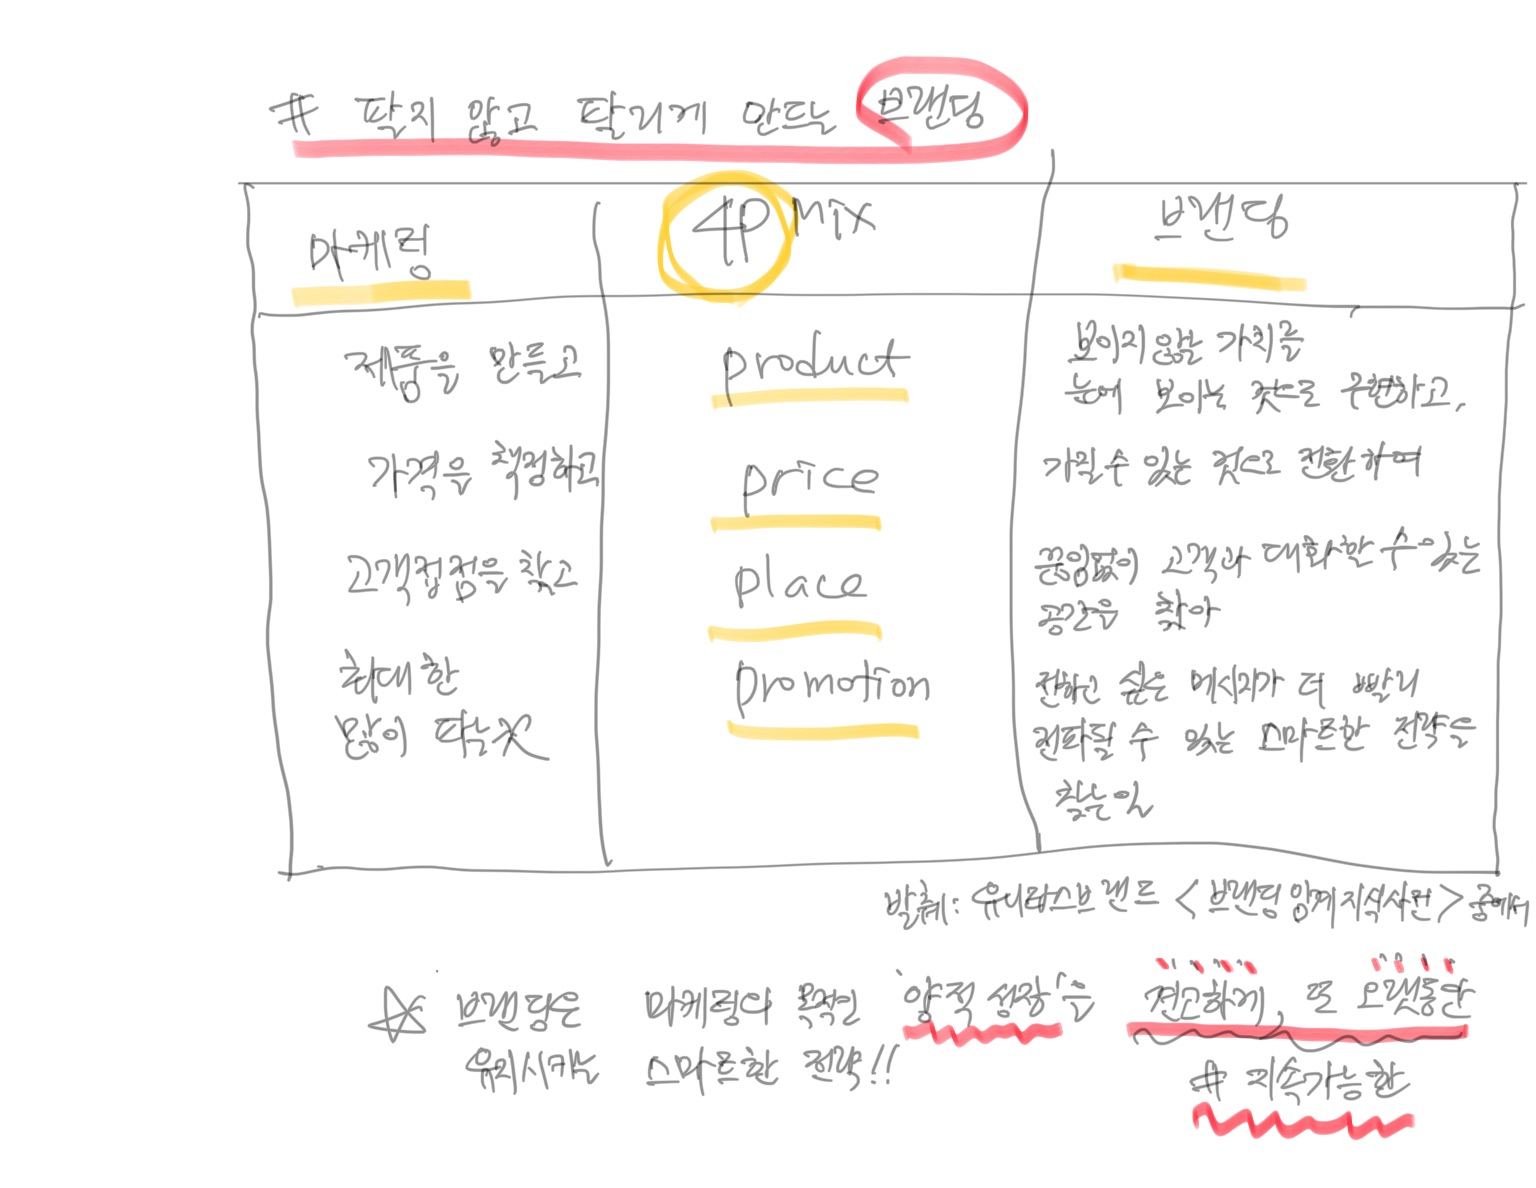 # 팔지 않고 팔리게 만드는 브랜딩
마케팅 4P Mix 브랜딩
제품을 만들고 product 보이지 않는 가치를
눈에 보이는 것으로 구현하고,
가격을 책정하고 price 가질 수 있는 것으로 전환하여
고객접점을 찾고 place 끊임없이 고객과 대화할 수 있는
공간을 찾아
최대한 promotion 전하고 싶은 메시지가 더 빨리
많이 파는 것 전파될 수 있는 스마트한 전략을
찾는 일
발췌: 유니타스브랜드 <브랜딩 임계지식사전> 중에서
☆ 브랜딩은 마케팅의 목적인 '양적 성장'을 견고하게, 또 오랫동안
유지시키는 스마트한 전략!!
# 지속가능한